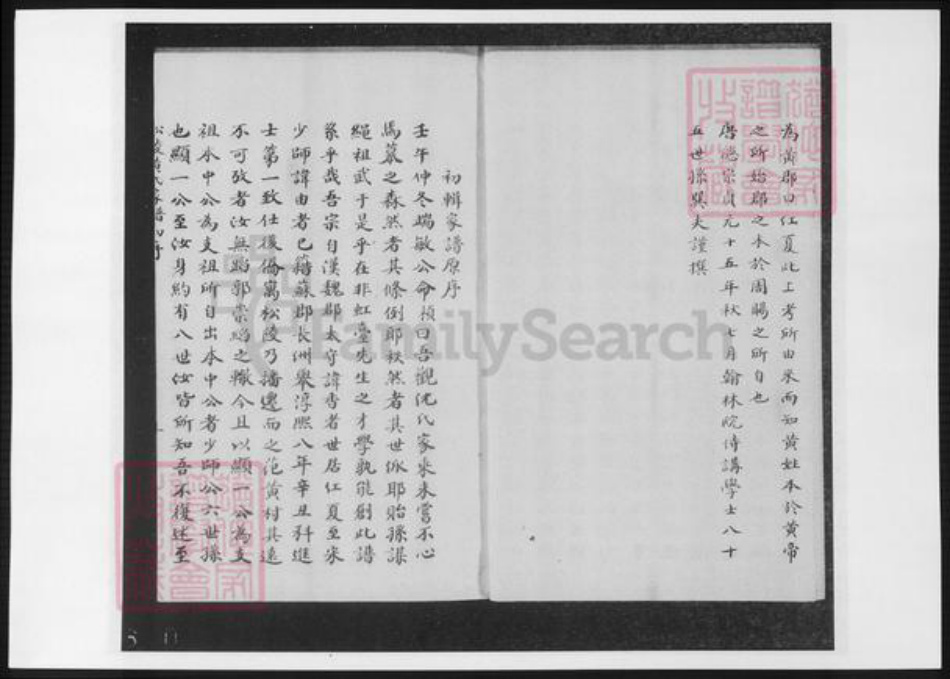 為黄郡曰江夏此上考所由来而知黄姓本於黄帝
之所始郡之本於周賜之所自也
唐德宗貞元十五年秋七月翰林院侍講學士八十
五世孫巽夫謹撰
初輯家譜原序
壬午仲冬端敏公命禎曰吾觀沈氏家乘未嘗不心
焉慕之森然者其條例耶秩然者其世派耶貽孫謀
繩祖武于是乎在非虹臺先生之才學孰能創此譜
家乎哉吾宗自漢魏郡太守諱香者世居江夏至宋
少師諱由者已籍蘇郡長洲舉淳熙八年辛丑科進
士第一致仕後僑寓松陵乃播遷而之范黄村其遠
不可攷者汝無蹈郭崇韜之轍今且以顯一公為支
祖本中公為支祖所自出本中公者少師公六世孫
也顯一公至汝身約有八世汝皆所知吾不復述至
松陵黄氏家譜初序
FamilySearch